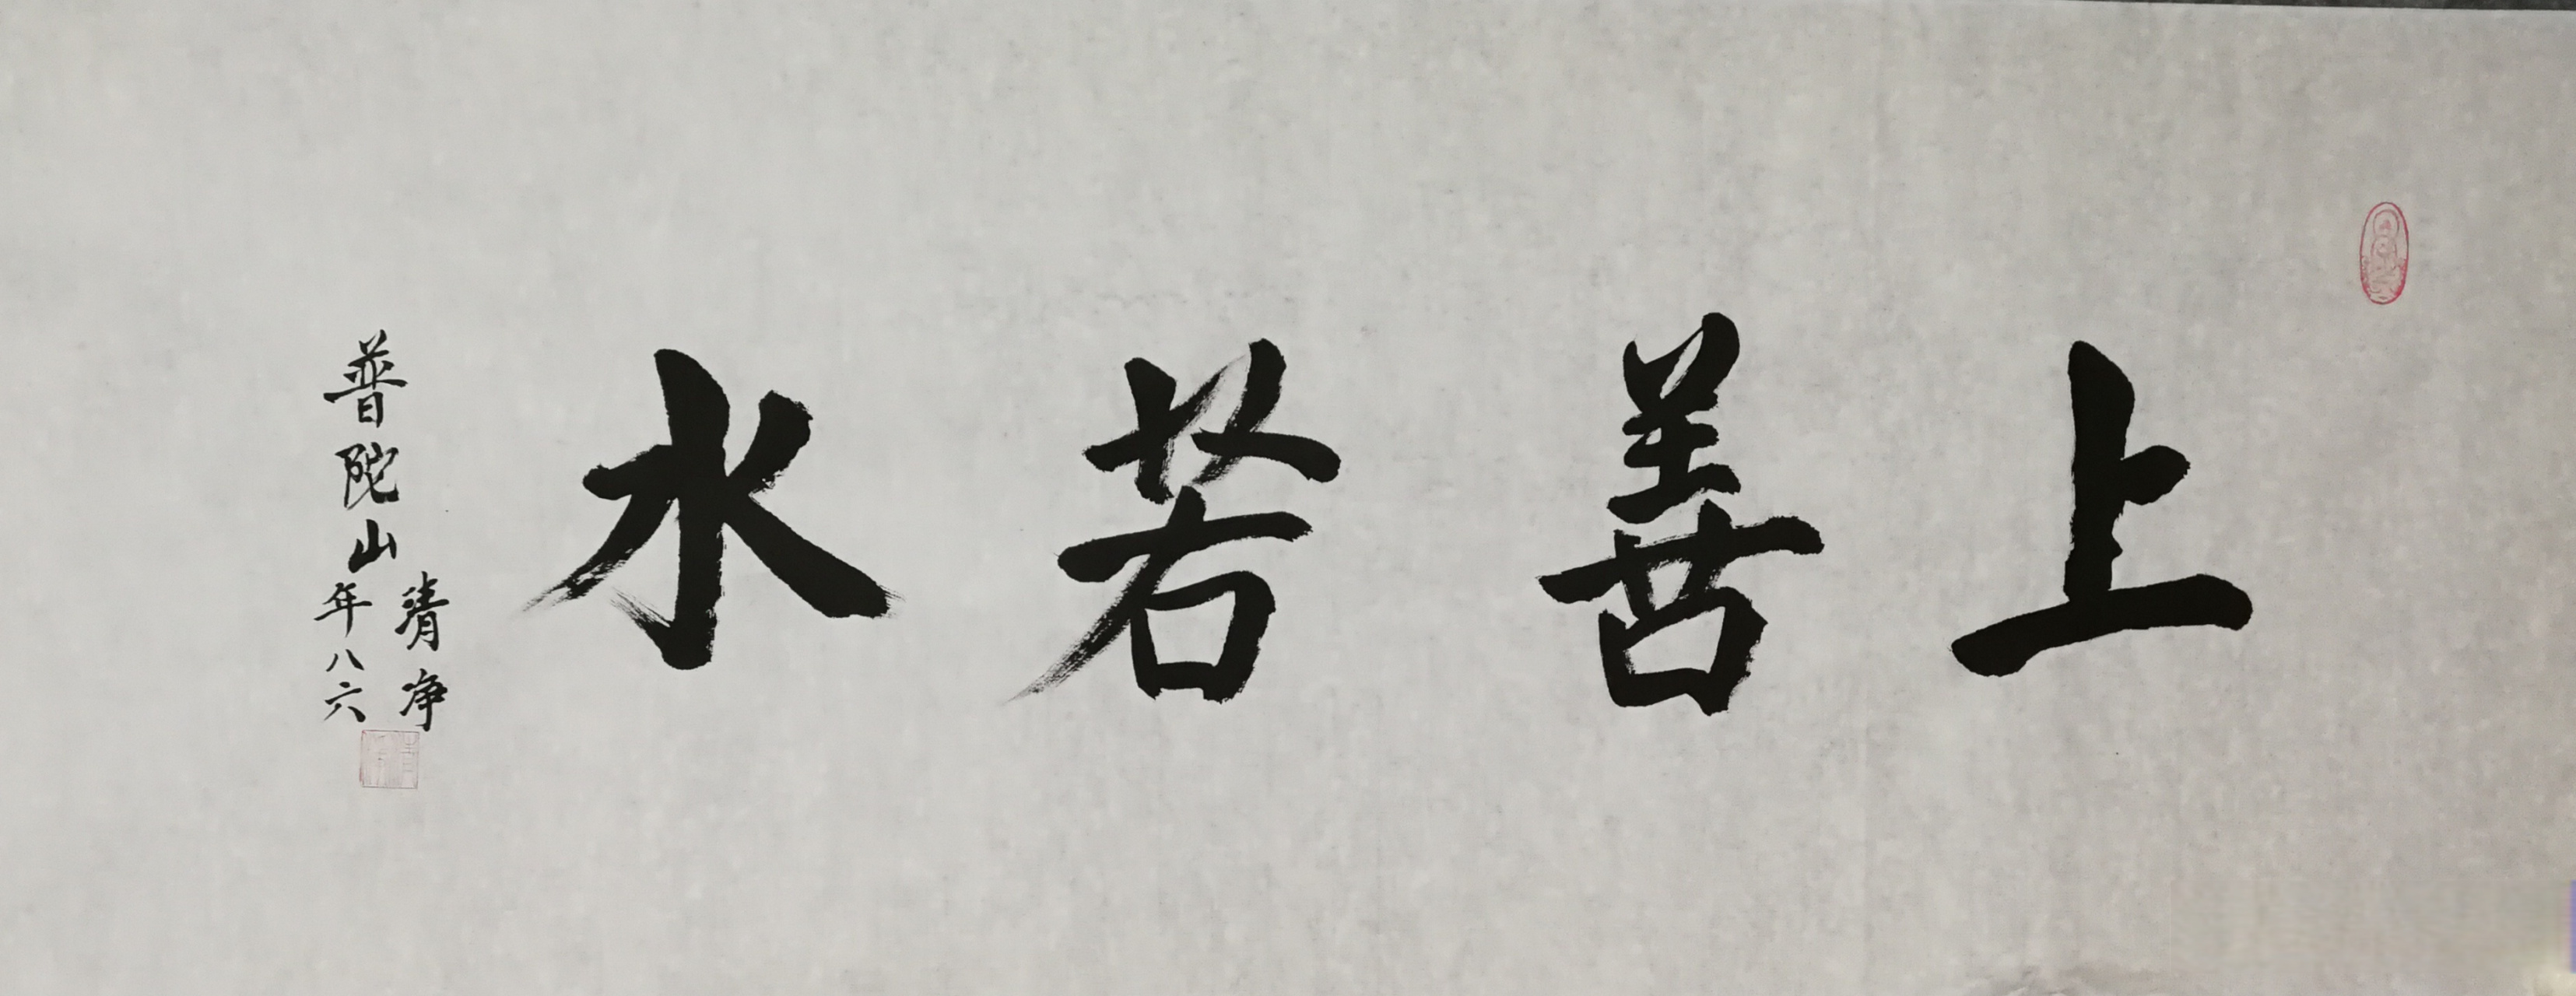 上善若水
普陀山
清净
年八六